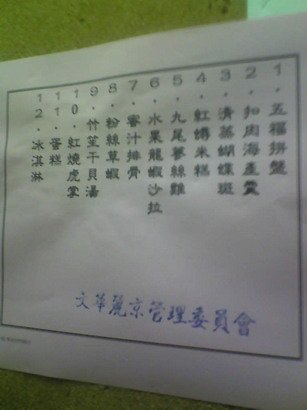 1．五福拼盤
2．扣肉海產羹
3．清蒸蝴蝶斑
4．紅蟳米糕
5．九尾蔘絲雞
6．水果龍蝦沙拉
7．蜜汁排骨
8．粉絲草蝦
9．竹笙干貝湯
10．紅燒虎掌
11．蛋糕
12．冰淇淋
文華麗京管理委員會